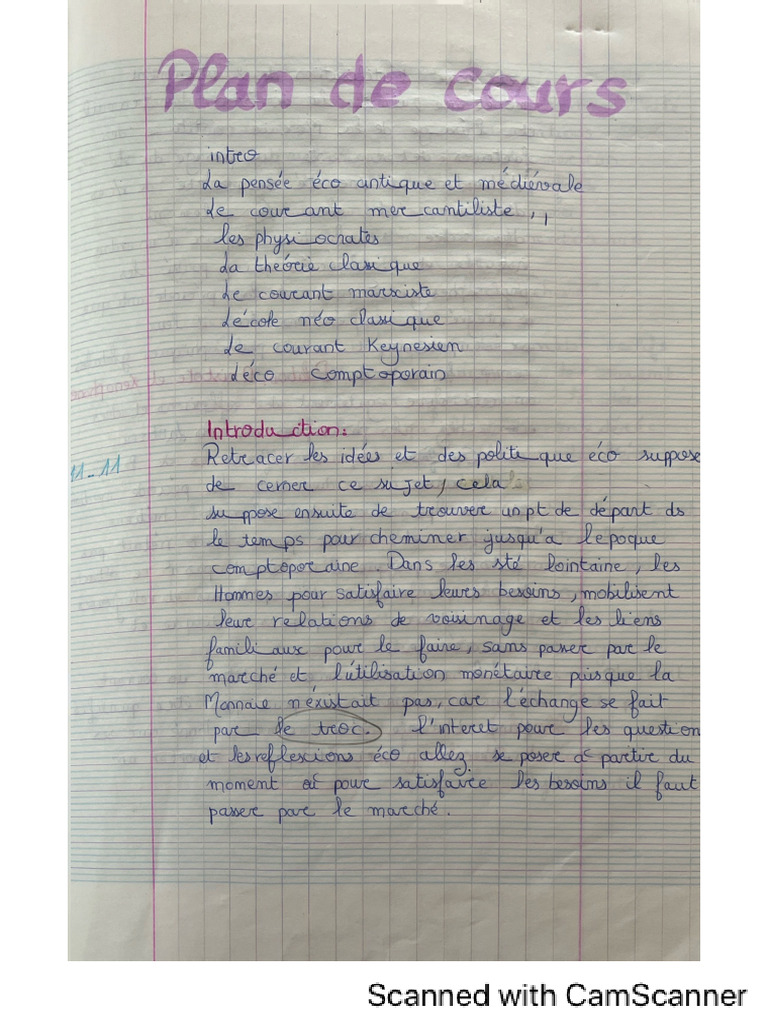 Plan de cours
intro
La pensée éco antique et médiévale
Le courant mercantiliste ,,
les physiocrates
La théorie clasique
Le courant marxiste
L'école néo clasique
Le courant Keynesien
L'éco comptoporain
Introduction:
Retracer les idées et des politique éco suppose
11-11
de cerner ce sujet, cela
suppose ensuite de trouver un pt de départ ds
le temps pour cheminer jusqu'a l'epoque
comptoporaine. Dans les sté lointaine, les
Hommes pour satisfaire leurs besoins, mobilisent
leur relations de voisinage et les liens
familiaux pour le faire, sans passer par le
marché et l'utilisation monétaire puisque la
Monnaie n'éxistait pas, car l'échange se fait
par le troc. l'interet pour les question
et les reflexions éco allez se poser à partir du
moment où pour satisfaire les besoins il faut
passer par le marché.
Scanned with CamScanner